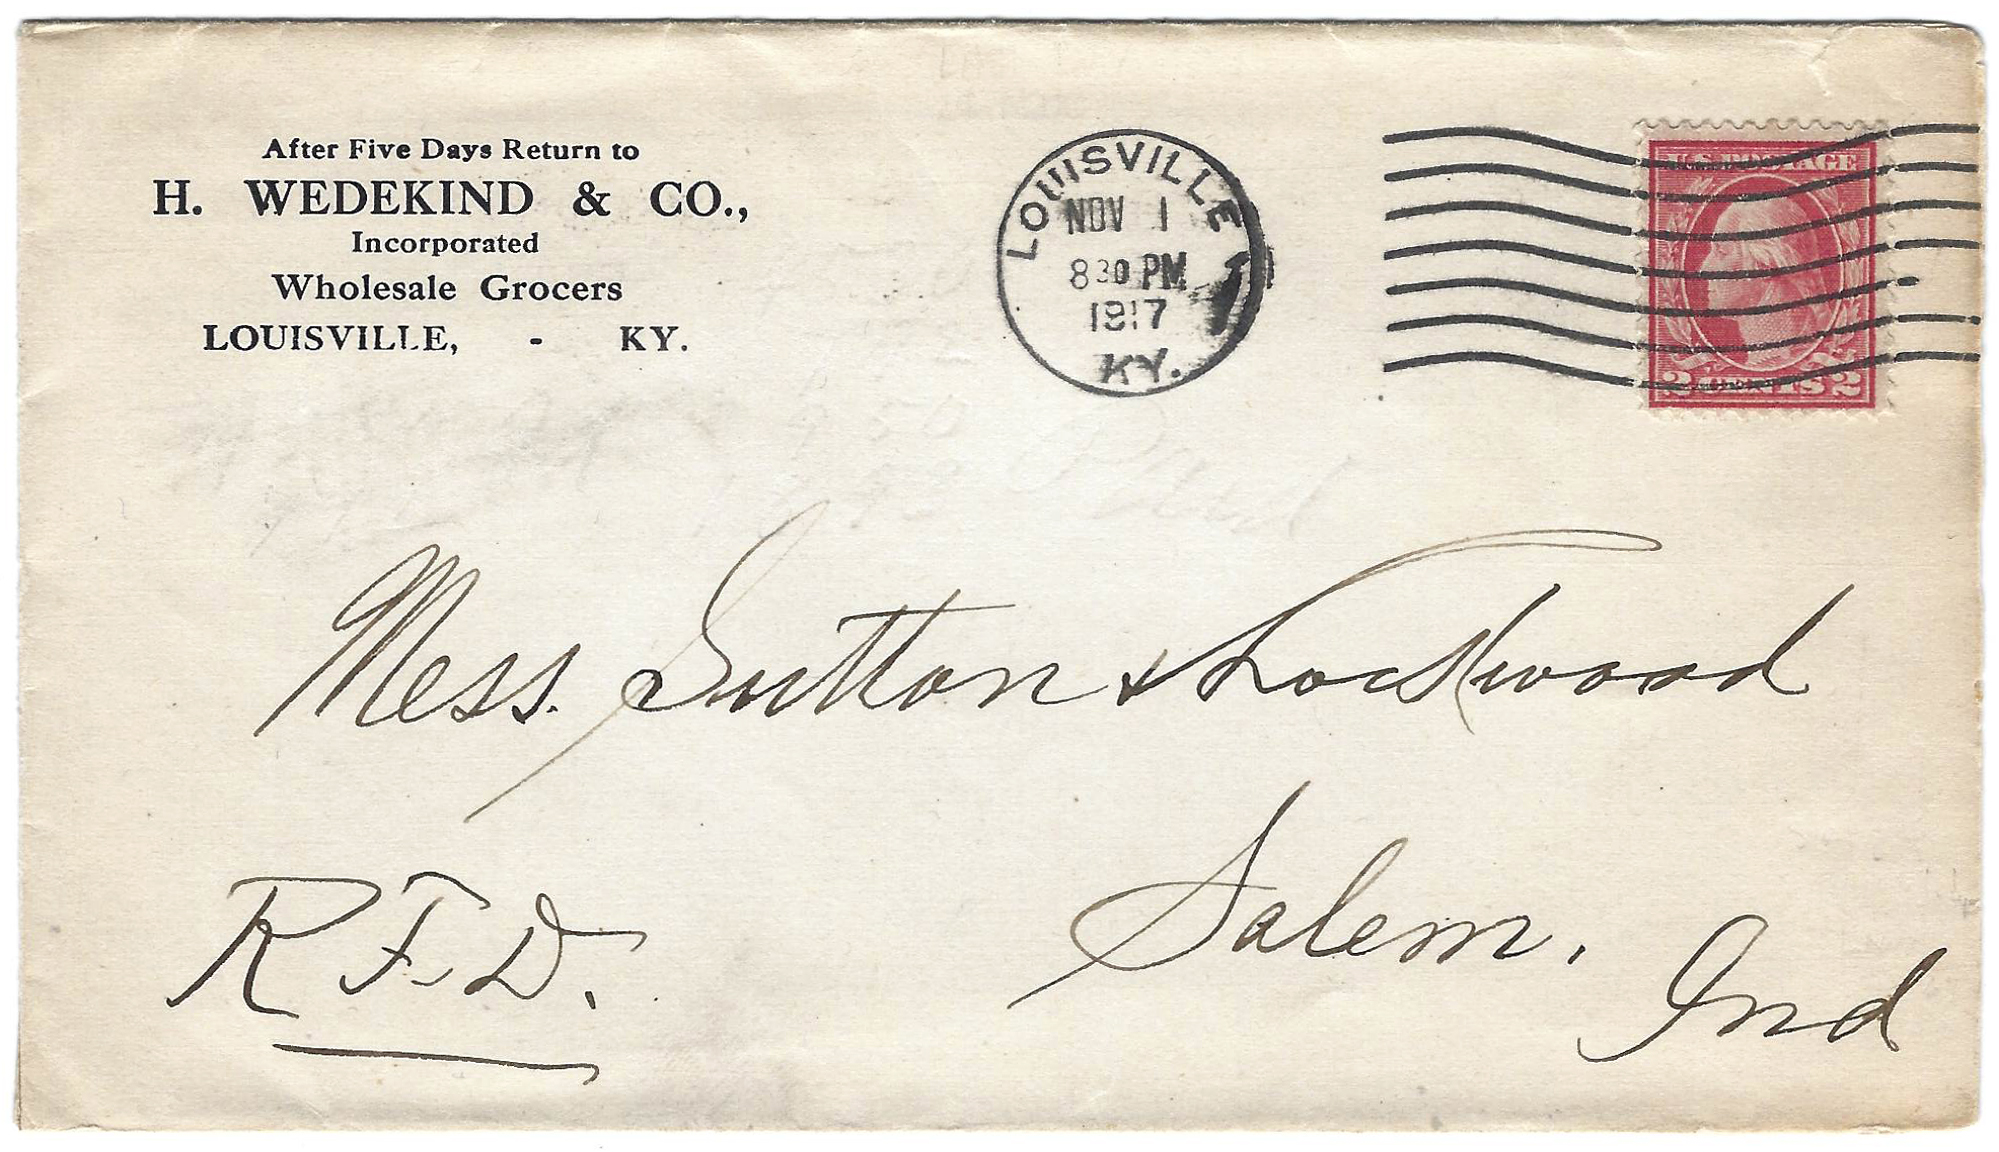 After Five Days Return to
H. WEDEKIND & CO.,
Incorporated
Wholesale Grocers
LOUISVILLE, - KY.
LOUISVILLE
NOV 1
830 PM
1917
KY.
U.S. POSTAGE
2 CENTS 2
Mess. Sutton & Lockwood
R.F.D.
Salem.
Ind